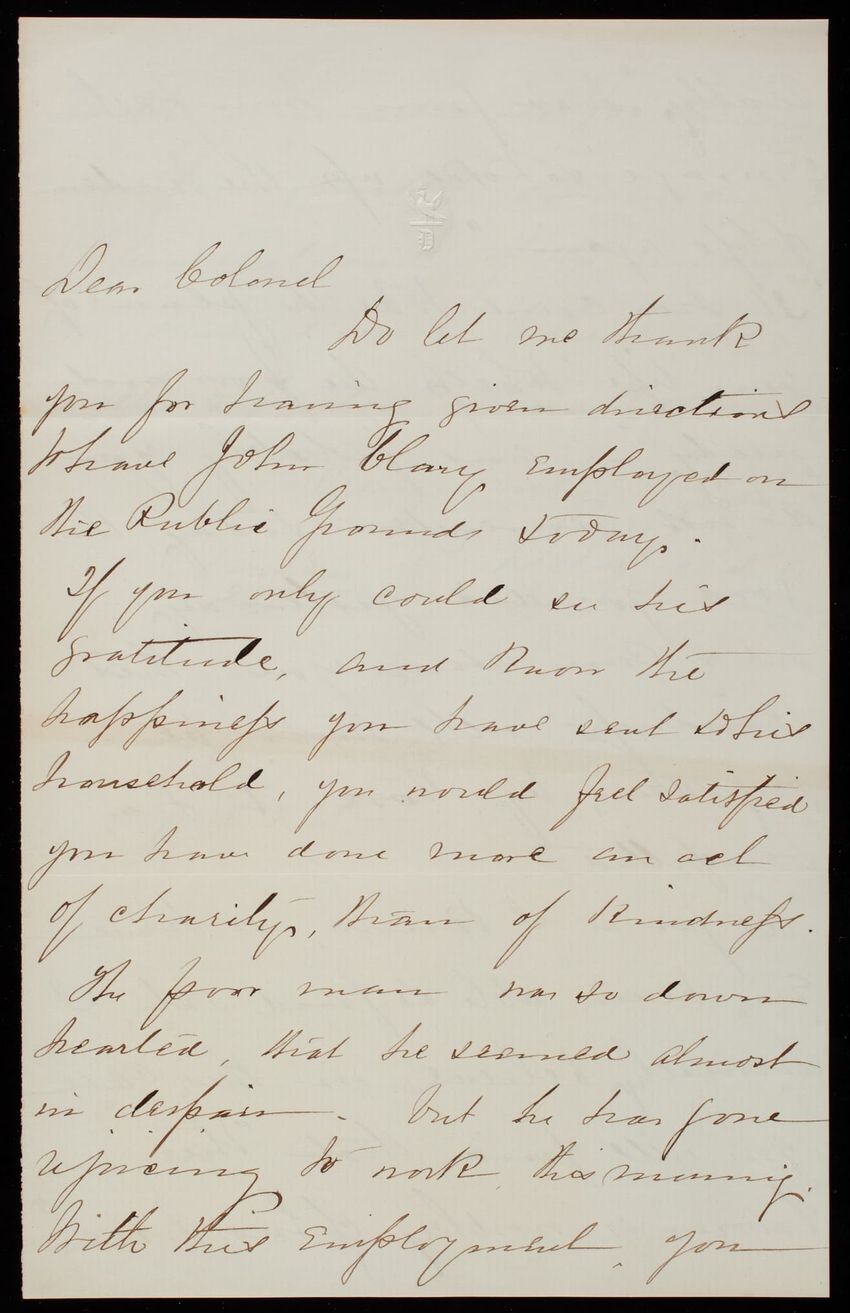 Dear Colonel
Do let me thank
you for having given directions
to have John Clary employed on
the Public Grounds today.
If you only could see his
gratitude, and know the
happiness you have sent to his
household, you would feel satisfied
you have done more an act
of charity, than of kindness.
The poor man was so down
hearted, that he seemed almost
in despair. but he has gone
rejoicing to work this morning.
With this employment, you